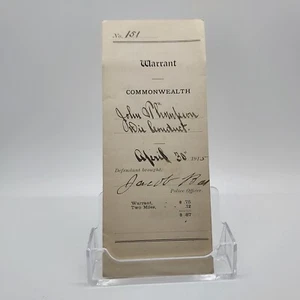 No. 181
Warrant
COMMONWEALTH
John Thompson
Dis Conduct.
April 30 191
Defendant brought:
Jacob
Police Officer.
Warrant, $ 75
Two Miles, 12
$ 87